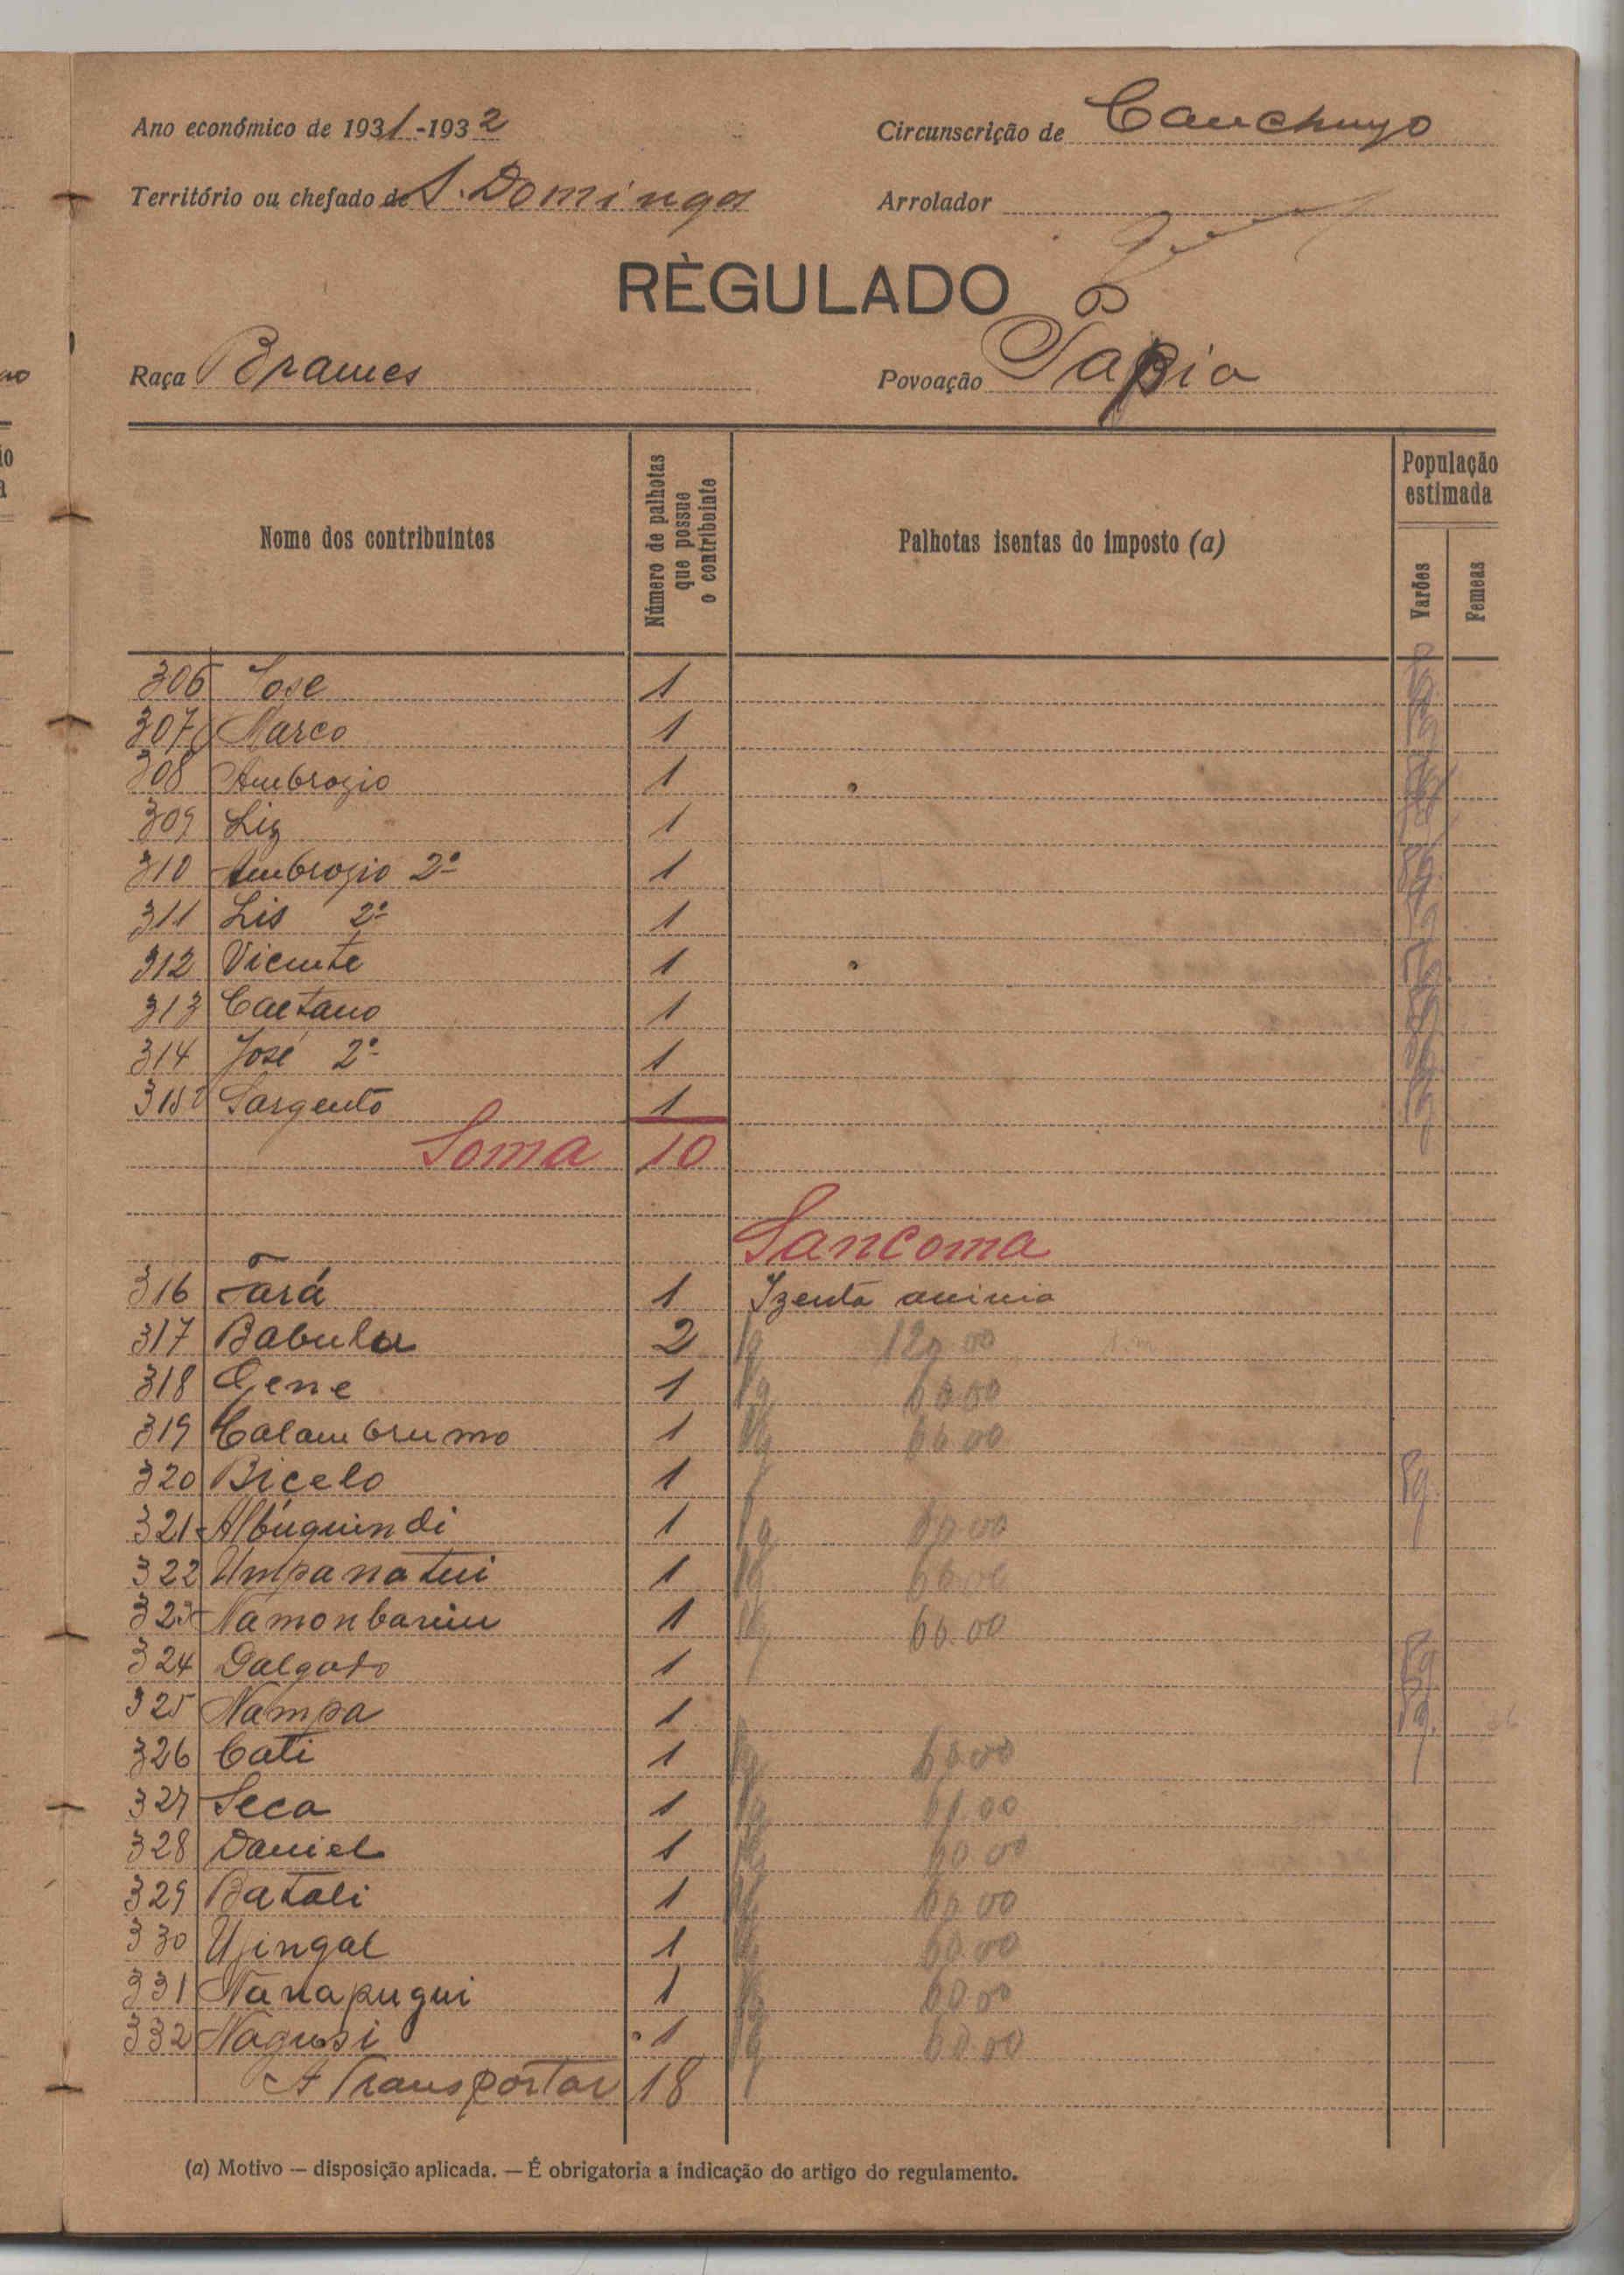 Ano económico de 1931-1932
Circunscrição de Canchungo
Território ou chefado de S. Domingos
Arrolador
RÈGULADO
Raça Brames
Povoação
Nome dos contribuintes
Número de palhotas que possue o contribuinte
Palhotas isentas do imposto (a)
População estimada
Varões
Femeas
306 Jose 1
307 Marco 1
308 Ambrozio 1
309 Liz 1
310 Ambrozio 2º 1
311 Lis 2º 1
312 Vicente 1
313 Caetano 1
314 José 2º 1
315 Sargento 1
Soma 10
Sancoma
316 Tará 1 Izenta
317 Babula 2 120.00
318 Gene 1 60.00
319 Calambrumo 1 60.00
320 Bicelo 1 Pg.
321 Albuquindi 1 60.00
322 Umpanatui 1 60.00
323 1 60.00
324 Dalgado 1 Pg
325 Nampa 1 Pg.
326 Cati 1 60.00
327 Seca 1 60.00
328 Daniel 1 60.00
329 Batali 1 60.00
330 Ujingal 1 60.00
331 Nanapugui 1 60.00
332 Nagusi 1 60.00
A Transportar 18
(a) Motivo — disposição aplicada. — É obrigatoria a indicação do artigo do regulamento.